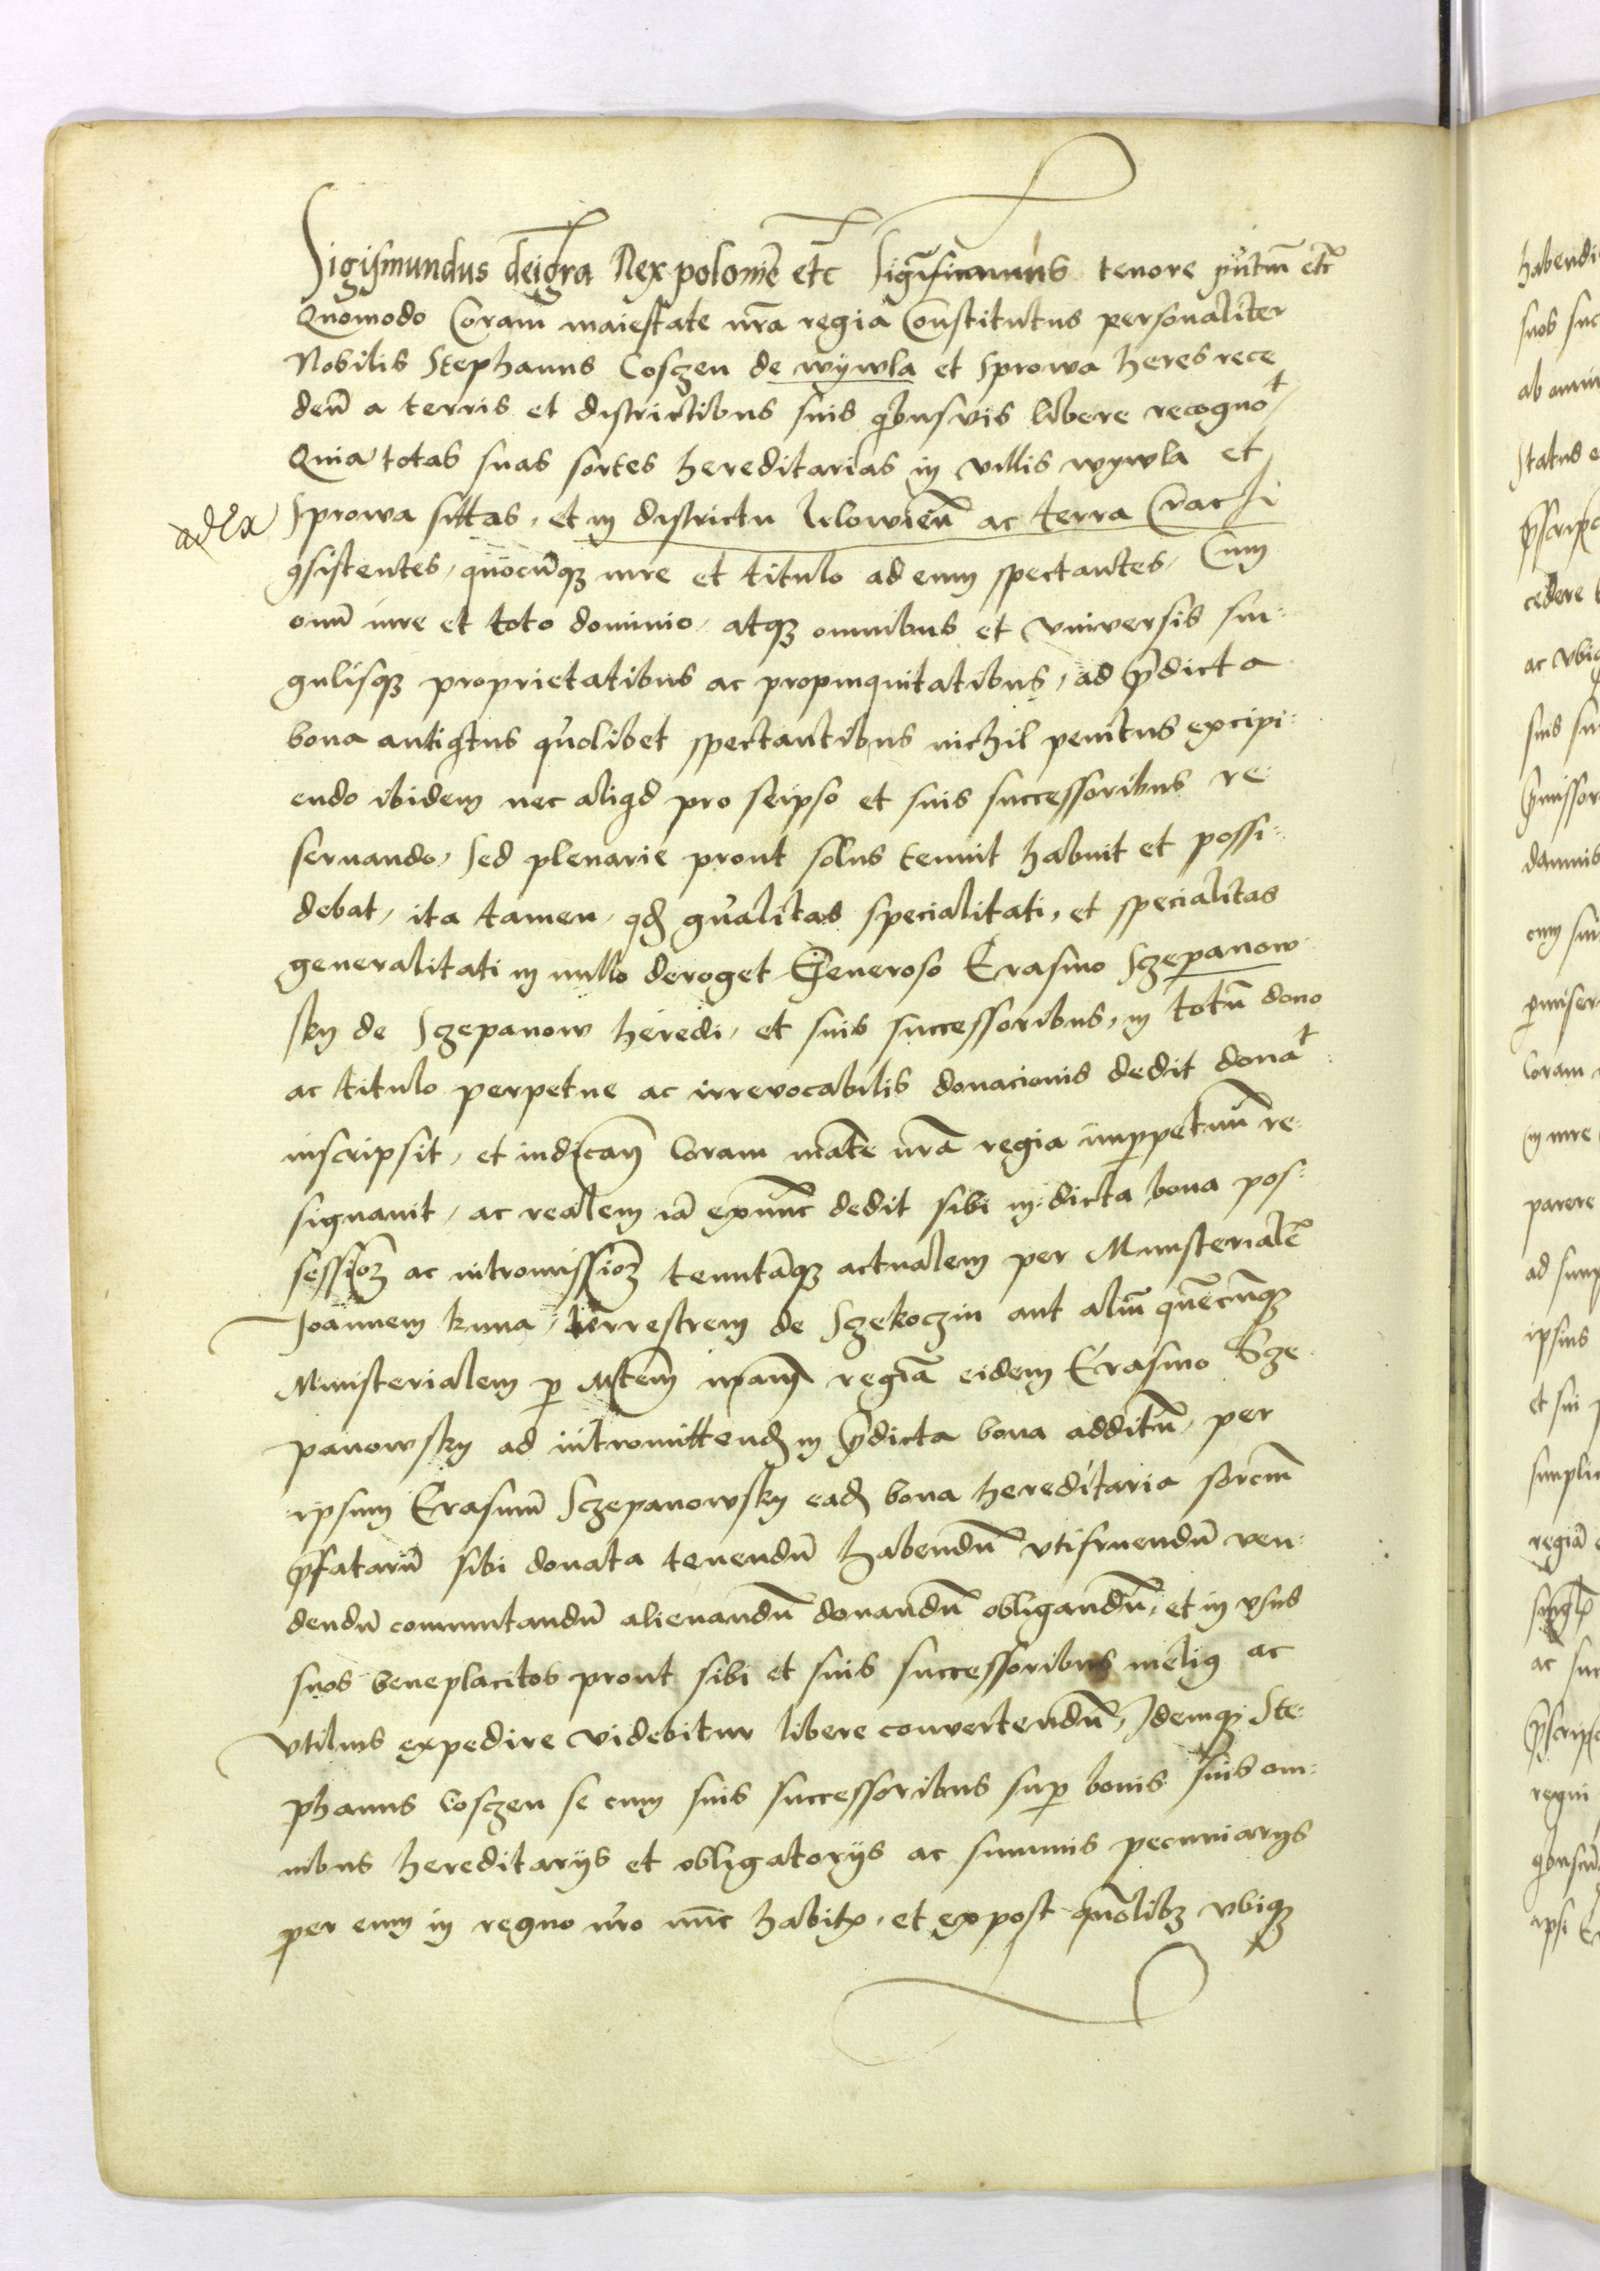 Sigismundus dei gra Rex polonie etc Significamus tenore pntm etc
Quomodo Coram maiestate nra regia Constitutus personaliter
Nobilis Stephanus Coschen de wywla et Sprowa heres rece
den a terris et districtibus suis qbusvis libere recognot
Quia totas suas sortes hereditarias in villis wywla et
Sprowa sittas, et in districtu Lelowien ac terra Crac
9sistentes, quocunq iure et titulo ad eum spectantes, Cum
omi iure et toto dominio, atq omnibus et vniversis sin:
gulisq proprietatibus ac propinquitatibus, ad pdicta
bona antiqtus quolibet spectantibus nichil penitus excipi:
endo ibidem nec aliqd pro seipso et suis successoribus re:
seruando, Sed plenarie prout solus tenuit habuit et possi:
debat, ita tamen, qd gnalitas specialitati, et specialitas
generalitati in nullo deroget Generoso Erasmo Sczepanow:
sky de Sczepanow heredi, et suis successoribus, in totu dono
ac titulo perpetue ac irrevocabilis donacionis dedit donat
inscripsit, et coram mate nra regia imppetuu re:
signauit, ac realem ia exnunc dedit sibi in dicta bona pos:
session ac intromission tentaq actualem per Ministeriale
Joannem kuna, terrestrem de Sczekoczin aut aliu quecunq
Ministerialem p Mtem nram regia eidem Erasmo Scze
panowsky ad intromittend in pdicta bona additu, per
ipsum Erasmu Sczepanowsky ead bona hereditaria sorcm
pfataru sibi donata tenendu habendu vtifruendu ven:
dendu commutandu alienandu donandu obligandu, et in vsus
suos beneplacitos prout sibi et suis successoribus meli9 ac
vtilius expedire videbitur libere convertendu, Idemq Ste:
phanus Coschen se cum suis successoribus sup bonis suis om:
nibus hereditarijs et obligatorijs ac summis pecuniarijs
per eum in regno nro nunc habit, et expost quolibz vbiq